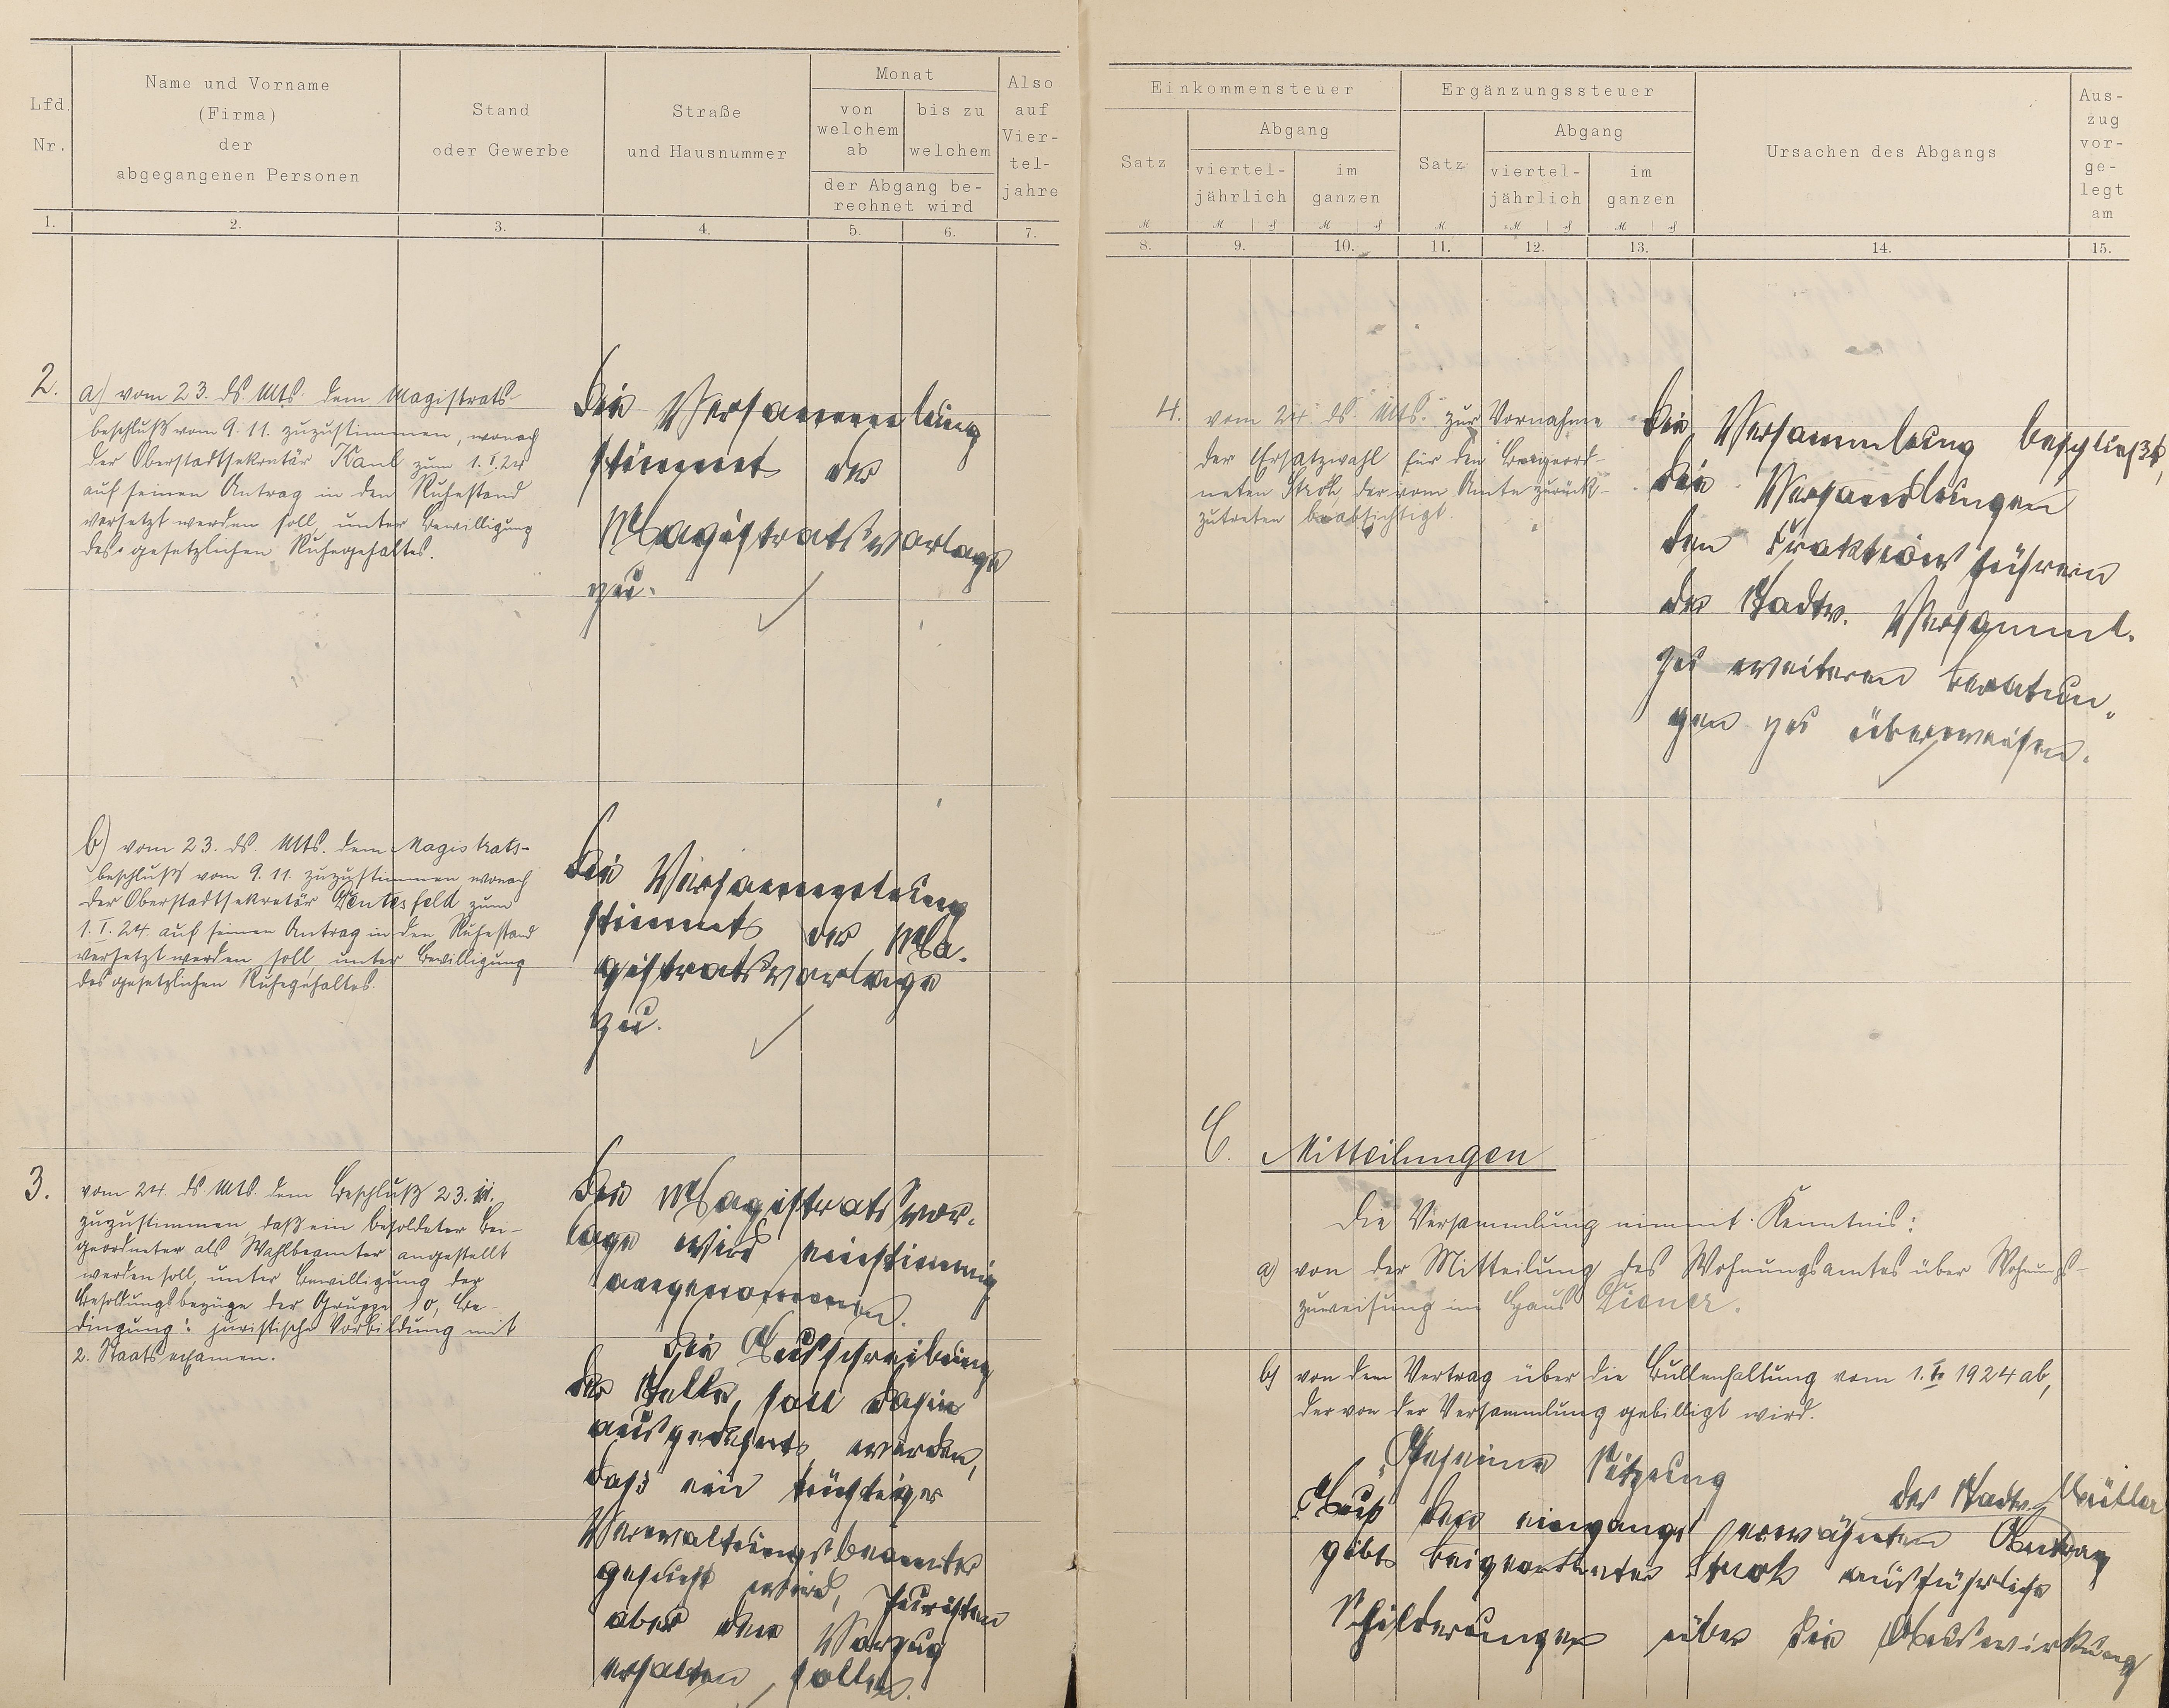 Lfd. Nr.
Name und Vorname
(Firma)
der
abgegangenen Personen
Stand
oder Gewerbe
Straße
und Hausnummer
Monat
von welchem ab
bis zu welchem
der Abgang be-
rechnet wird
Also auf Vier-
tel-
jahre
1. 2. 3. 4. 5. 6. 7.
2. a) vom 23. ds. Mts. dem Magistrats-
beschluß vom 9. 11. zuzustimmen, wonach
der Oberstadtsekretär Kaul zum 1. I. 24
auf seinen Antrag in den Ruhestand
versetzt werden soll, unter Bewilligung
des gesetzlichen Ruhegehaltes.
Die Versammlung
stimmt der
Magistratsvorlage
zu.
b) vom 23. ds. Mts. dem Magistrats-
beschluß vom 9. 11. zuzustimmen wonach
der Oberstadtsekretär zum
1. I. 24. auf seinen Antrag in den Ruhestand
versetzt werden soll, unter Bewilligung
des gesetzlichen Ruhegehaltes.
Die Versammlung
stimmt der Ma-
gistratsvorlage
zu.
3. vom 24. ds Mts. dem Beschluß 23. 11.
zuzustimmen, daß ein besoldeter Bei-
geordneter als Wahlbeamter angestellt
werden soll, unter Bewilligung der
Besoldungsbezüge der Gruppe 10, Be-
dingung: juristische Vorbildung mit
2. Staatsexamen.
Die Magistratsvor-
lage wird einstimmig
angenommen.
Die Ausschreibung
der Stelle soll dahin
ausgedehnt werden,
daß ein tüchtiger
Verwaltungsbeamter
gesucht wird, Juristen
aber den Vorzug
erhalten sollen.
Einkommensteuer
Satz
Abgang
viertel-
jährlich
im
ganzen
Ergänzungssteuer
Satz
Abgang
viertel-
jährlich
im
ganzen
Ursachen des Abgangs
Aus-
zug
vor-
ge-
legt
am
8. 9. 10. 11. 12. 13. 14. 15.
4. vom 24. ds. Mts. zur Vornahme
der Ersatzwahl für den Beigeord-
neten Stroh, der vom Amte zurück-
zutreten beabsichtigt.
Die Versammlung beschließt,
die Verhandlungen
den Fraktionsführern
der Stadtv. Versamml.
zu weiteren Beratun-
gen zu überweisen.
C. Mitteilungen
Die Versammlung nimmt Kenntnis:
a) von der Mitteilung des Wohnungsamtes über Wohnungs-
zuweisung im Haus
b) von dem Vertrag über die Bullenhaltung vom 1. I. 1924 ab,
der von der Versammlung gebilligt wird.
Geheime Sitzung
der Stadtv. Müller
Auf den eingangs erwähnten Antrag
gibt Beigeordneter Stroh ausführliche
Schilderungen über die Auswirkung